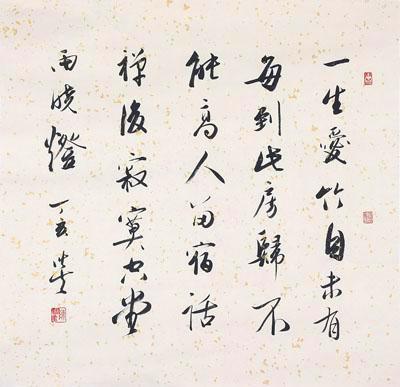 一生愛竹自未有
每到此房歸不
能高人留宿話
禪後寂寞空堂
雨曉燈 丁亥